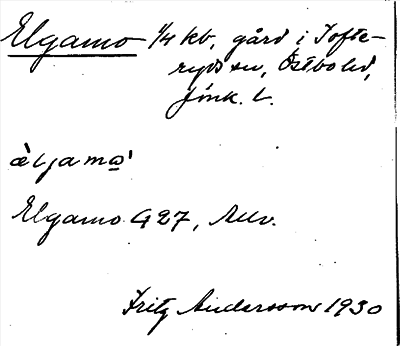 Elgamo 1/4 kb, gård i Tofte-
ryds sn, Östbo hd,
Jönk. l.
Elgamo G 27,
Fritz Andersson 1930